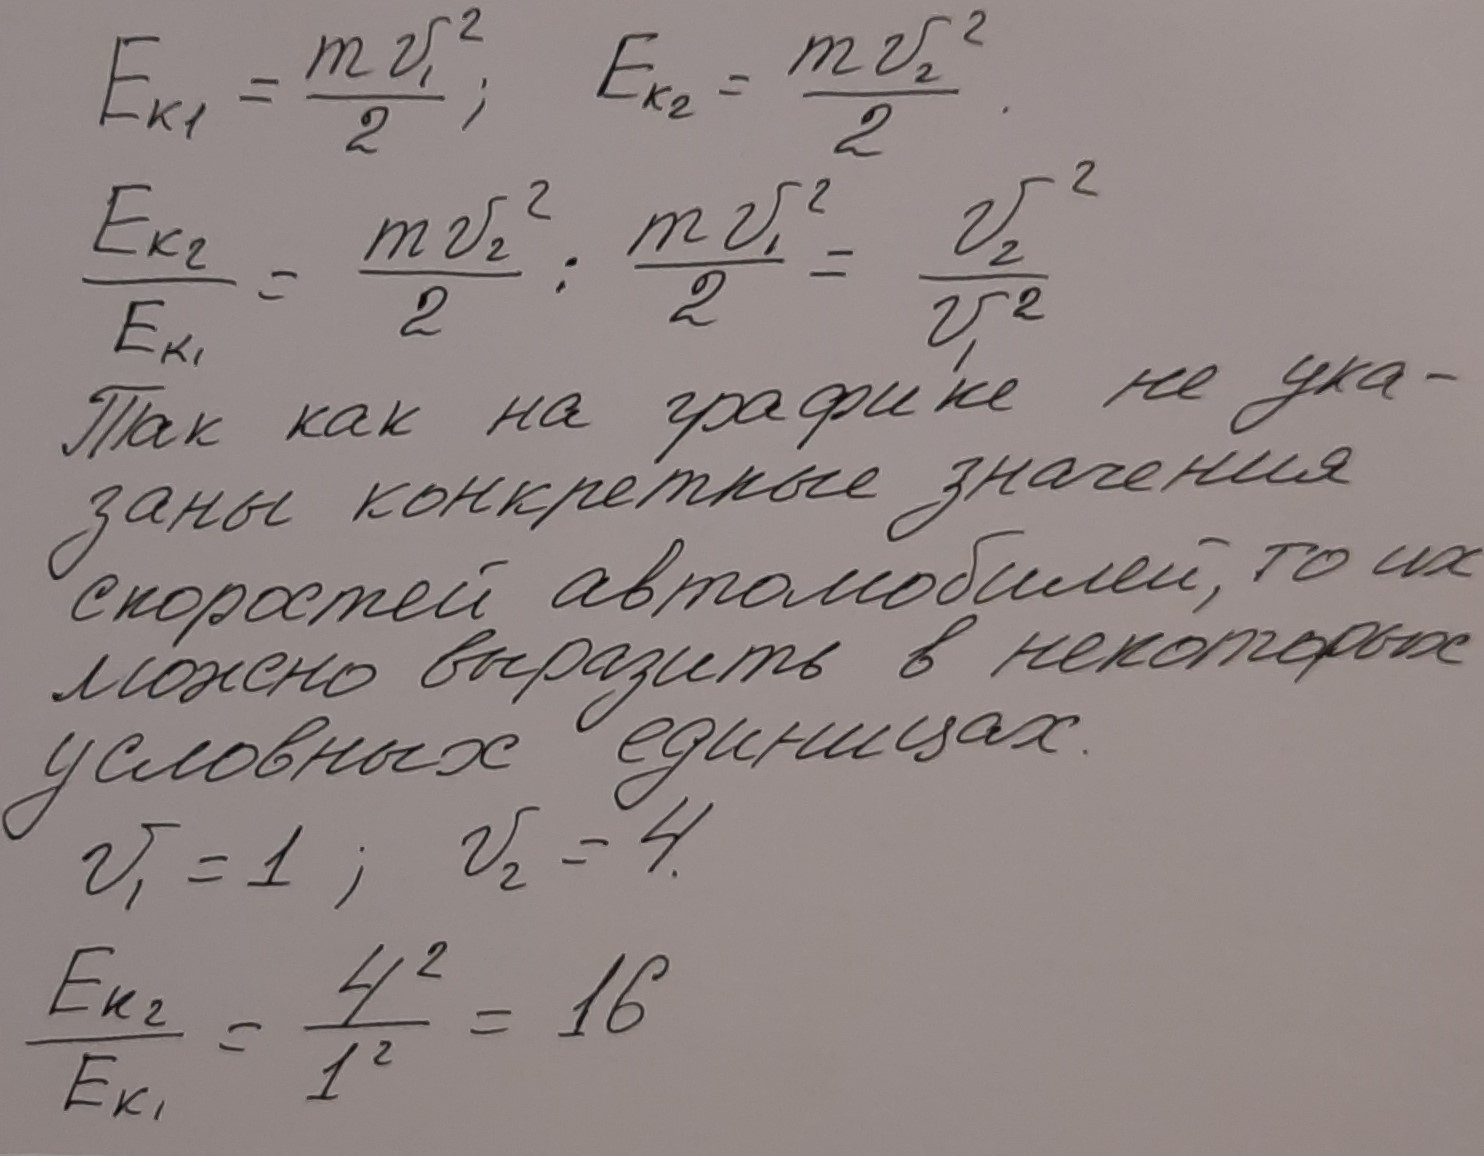 Eк1 = mv₁²/2; Eк2 = mv₂²/2.
Eк2/Eк1 = mv₂²/2 : mv₁²/2 = v₂²/v₁²
Так как на графике не ука-
заны конкретные значения
скоростей автомобилей, то их
можно выразить в некоторых
условных единицах.
v₁ = 1; v₂ = 4.
Eк2/Eк1 = 4²/1² = 16